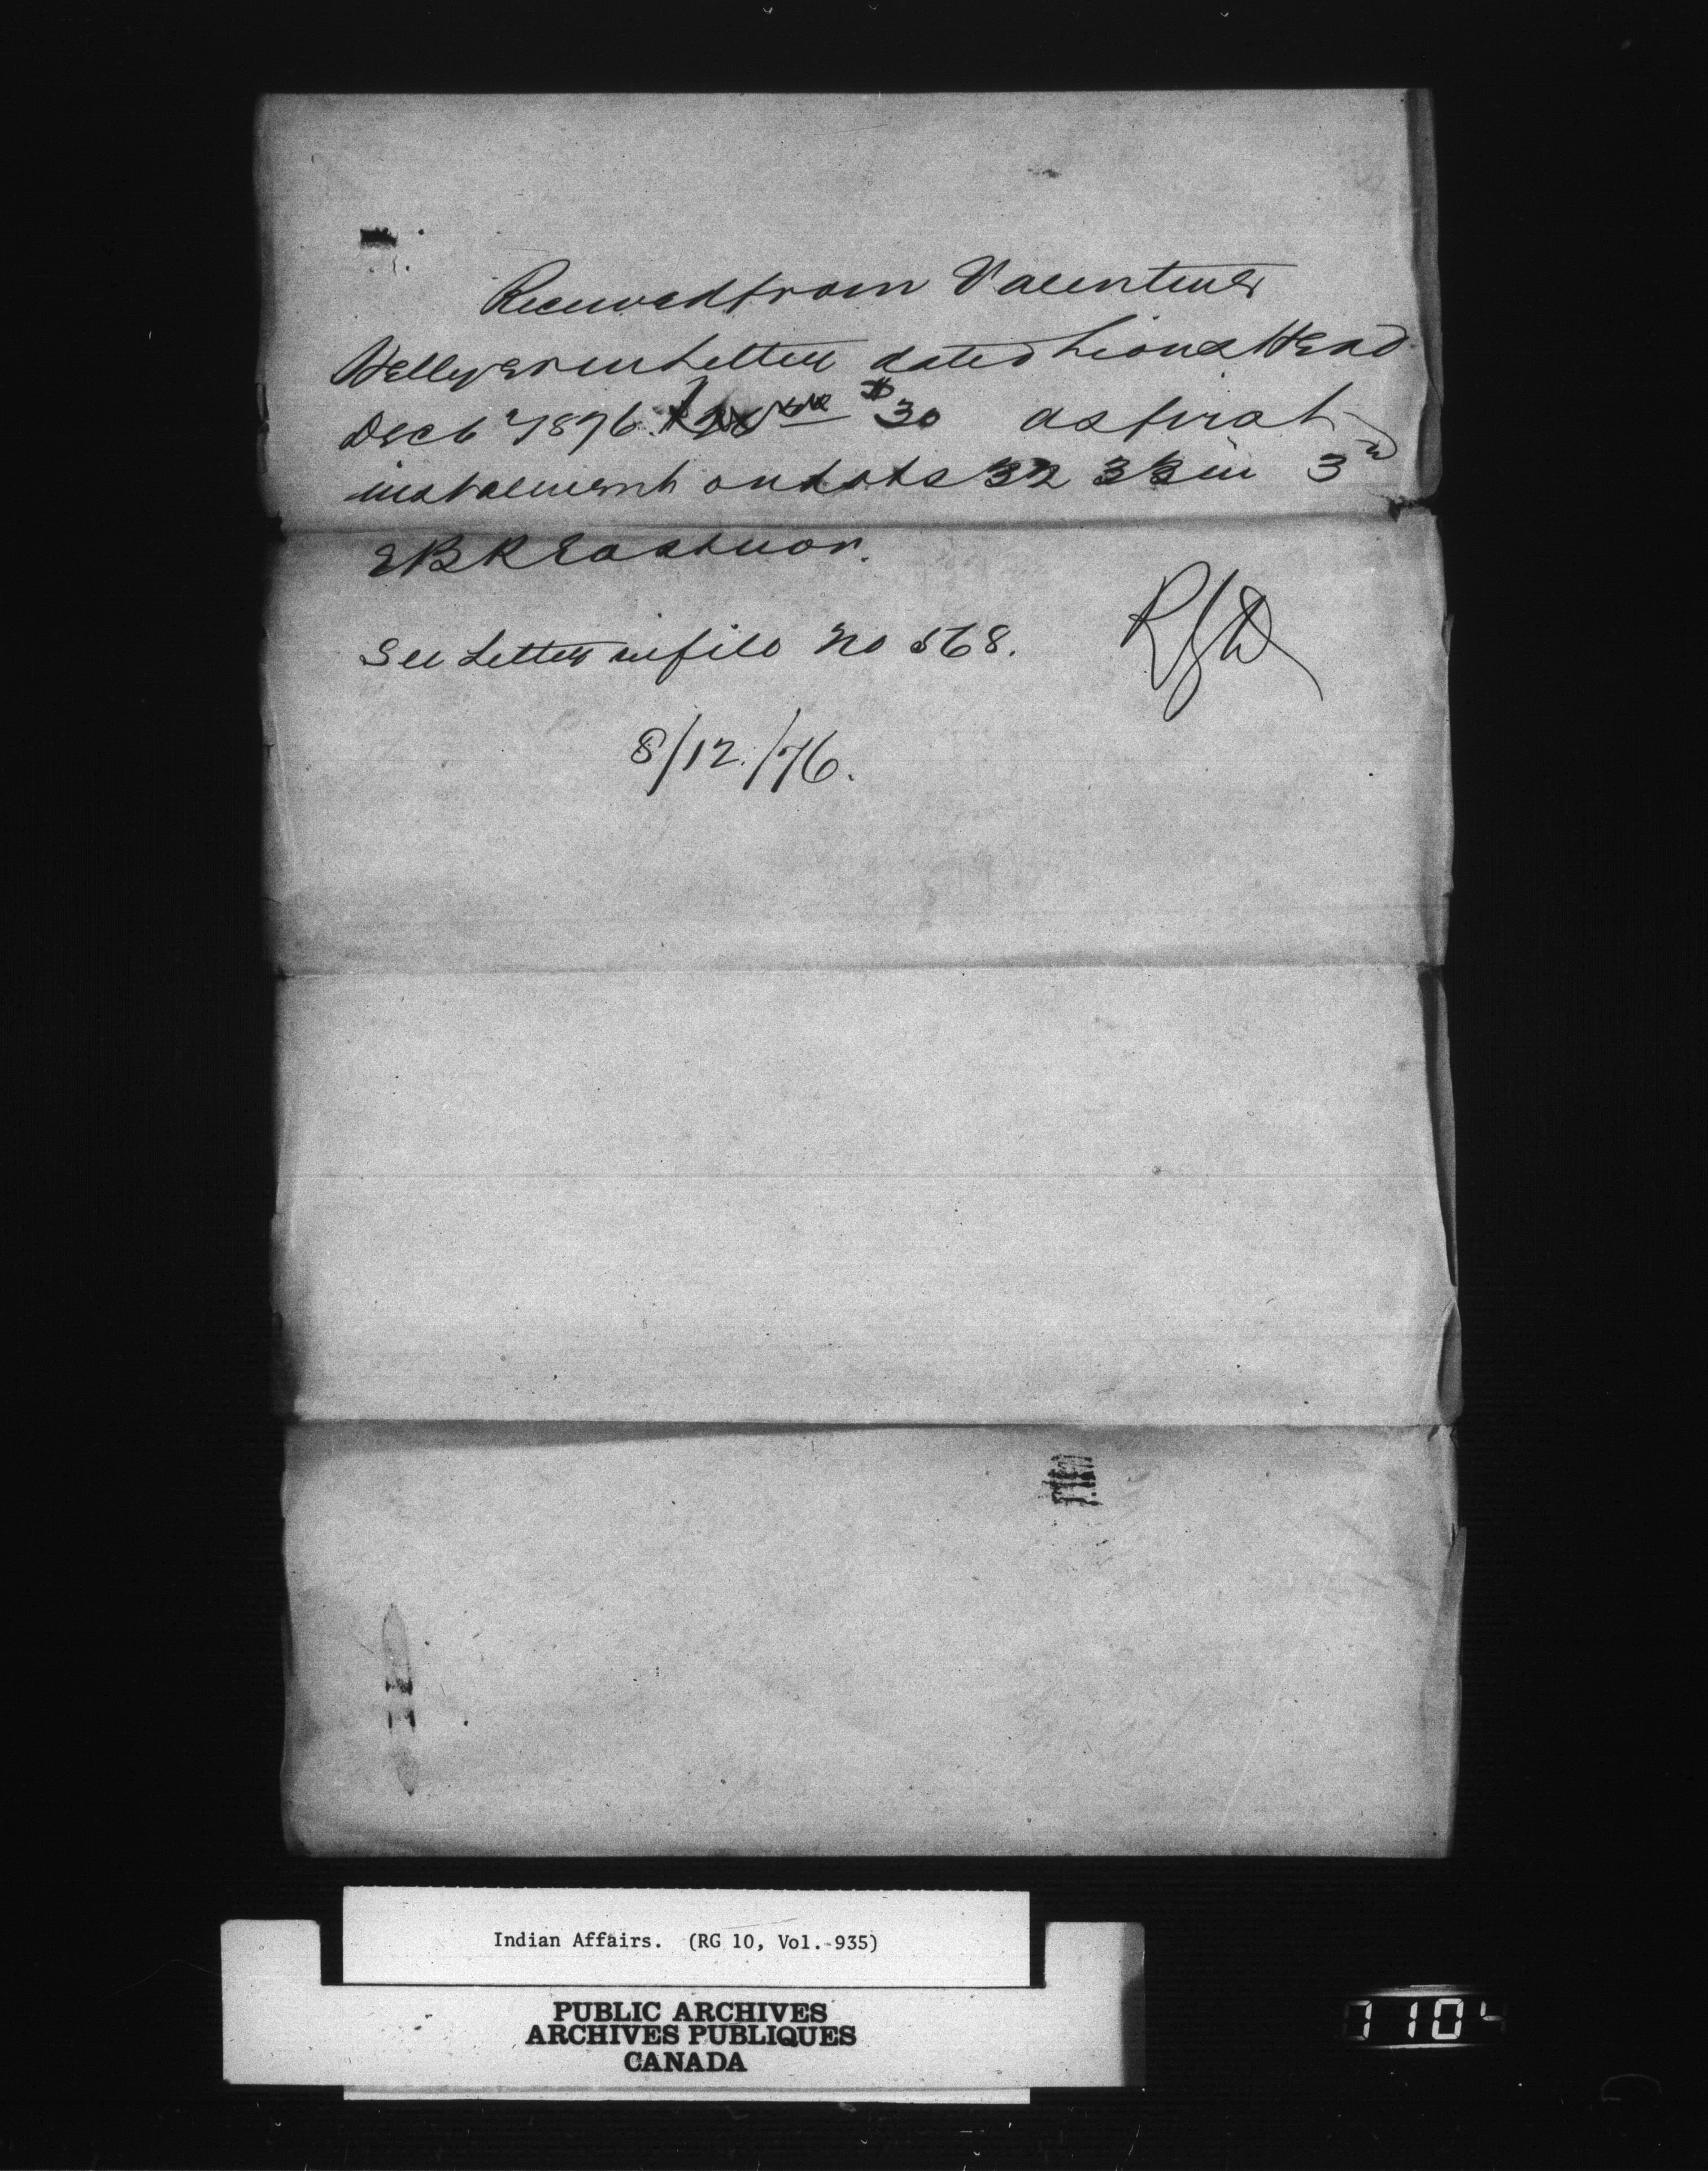 Received from Valentine
Hellyer in Letter dated Lions Head
Dec 6th 1876. $30 as first
instalment on Lots 32 33 in 3rd
EBR Eastnor.
See Letter in file No 568.
8/12./76.
Indian Affairs. (RG 10, Vol. 935)
PUBLIC ARCHIVES
ARCHIVES PUBLIQUES
CANADA
1104